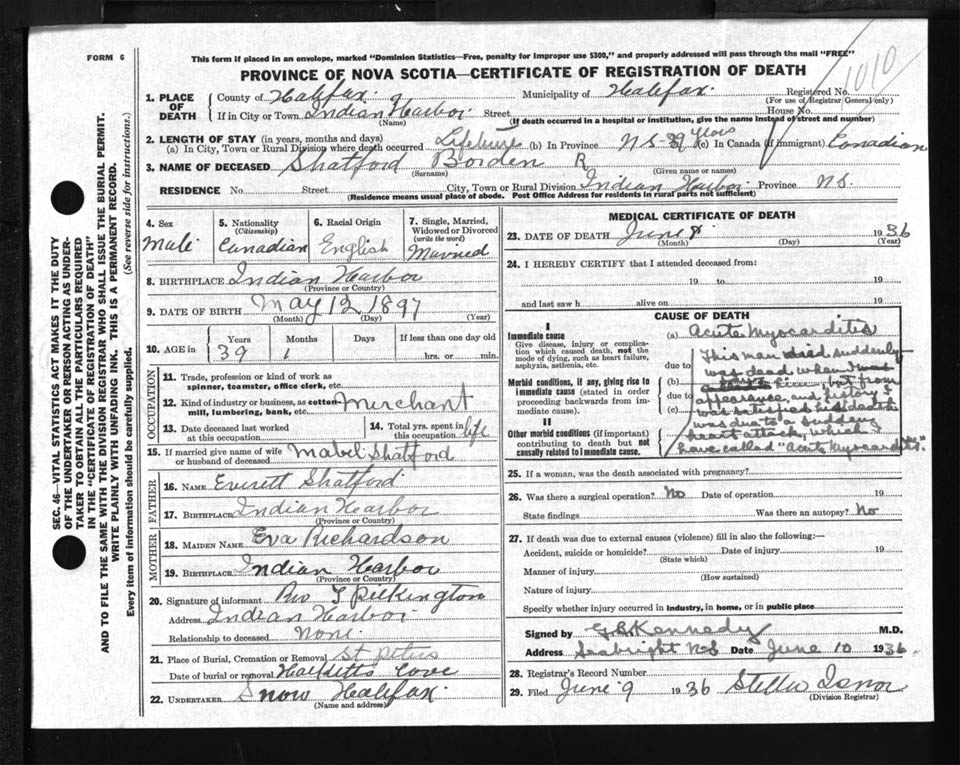 FORM 6
This form if placed in an envelope, marked "Dominion Statistics—Free, penalty for improper use $300," and properly addressed will pass through the mail "FREE"
PROVINCE OF NOVA SCOTIA—CERTIFICATE OF REGISTRATION OF DEATH
1010
1. PLACE OF DEATH
County of Halifax. Municipality of Halifax. Registered No.
(For use of Registrar General only)
If in City or Town Indian Harbor. Street House No.
(Name) (If death occurred in a hospital or institution, give the name instead of street and number)
2. LENGTH OF STAY (in years, months and days)
(a) In City, Town or Rural Division where death occurred Lifetime (b) In Province N.S-39 years (c) In Canada (if immigrant) Canadian
3. NAME OF DECEASED Shatford Borden R
(Surname) (Given name or names)
RESIDENCE No. Street City, Town or Rural Division Indian Harbor Province N.S.
(Residence means usual place of abode. Post Office Address for residents in rural parts not sufficient)
4. Sex
Male
5. Nationality
(Citizenship)
Canadian
6. Racial Origin
English
7. Single, Married, Widowed or Divorced
(write the word)
Married
8. BIRTHPLACE Indian Harbor
(Province or Country)
9. DATE OF BIRTH May 12 1897
(Month) (Day) (Year)
10. AGE in
Years Months Days If less than one day old
39 1 hrs. or min.
OCCUPATION
11. Trade, profession or kind of work as
spinner, teamster, office clerk, etc.
12. Kind of industry or business, as cotton
mill, lumbering, bank, etc. Merchant
13. Date deceased last worked
at this occupation
14. Total yrs. spent in
this occupation life
15. If married give name of wife
or husband of deceased Mabel Shatford
FATHER
16. NAME Everett Shatford
17. BIRTHPLACE Indian Harbor
(Province or Country)
MOTHER
18. MAIDEN NAME Eva Richardson
19. BIRTHPLACE Indian Harbor
(Province or Country)
20. Signature of informant Rev T Pilkington
Address Indian Harbor
Relationship to deceased None.
21. Place of Burial, Cremation or Removal St Peters
Date of burial or removal Hacketts Cove
22. UNDERTAKER Snow Halifax.
(Name and address)
MEDICAL CERTIFICATE OF DEATH
23. DATE OF DEATH June 8 1936
(Month) (Day) (Year)
24. I HEREBY CERTIFY that I attended deceased from:
19 to 19
and last saw h alive on 19
CAUSE OF DEATH
I
Immediate cause
Give disease, injury or complication which caused death, not the mode of dying, such as heart failure, asphyxia, asthenia, etc.
Morbid conditions, if any, giving rise to immediate cause (stated in order proceeding backwards from immediate cause).
II
Other morbid conditions (if important) contributing to death but not causally related to immediate cause.
(a) Acute Myocarditis
due to
(b)
due to
(c)
This man died suddenly
was dead when I was
, but from
appearance, and history I
was satisfied his death
was due to a sudden
heart attack, which I
have called "Acute Myocarditis".
25. If a woman, was the death associated with pregnancy?
26. Was there a surgical operation? No Date of operation 19
State findings Was there an autopsy? No
27. If death was due to external causes (violence) fill in also the following:—
Accident, suicide or homicide? Date of injury 19
(State which)
Manner of injury
(How sustained)
Nature of injury
Specify whether injury occurred in industry, in home, or in public place
Signed by G.B. Kennedy M.D.
Address Seabright N.S Date June 10 1936.
28. Registrar's Record Number
29. Filed June 9 1936 Stella Isnor
(Division Registrar)
SEC. 46—VITAL STATISTICS ACT MAKES IT THE DUTY
OF THE UNDERTAKER OR PERSON ACTING AS UNDER-
TAKER TO OBTAIN ALL THE PARTICULARS REQUIRED
IN THE "CERTIFICATE OF REGISTRATION OF DEATH"
AND TO FILE THE SAME WITH THE DIVISION REGISTRAR WHO SHALL ISSUE THE BURIAL PERMIT.
WRITE PLAINLY WITH UNFADING INK. THIS IS A PERMANENT RECORD.
Every item of information should be carefully supplied. (See reverse side for instructions.)